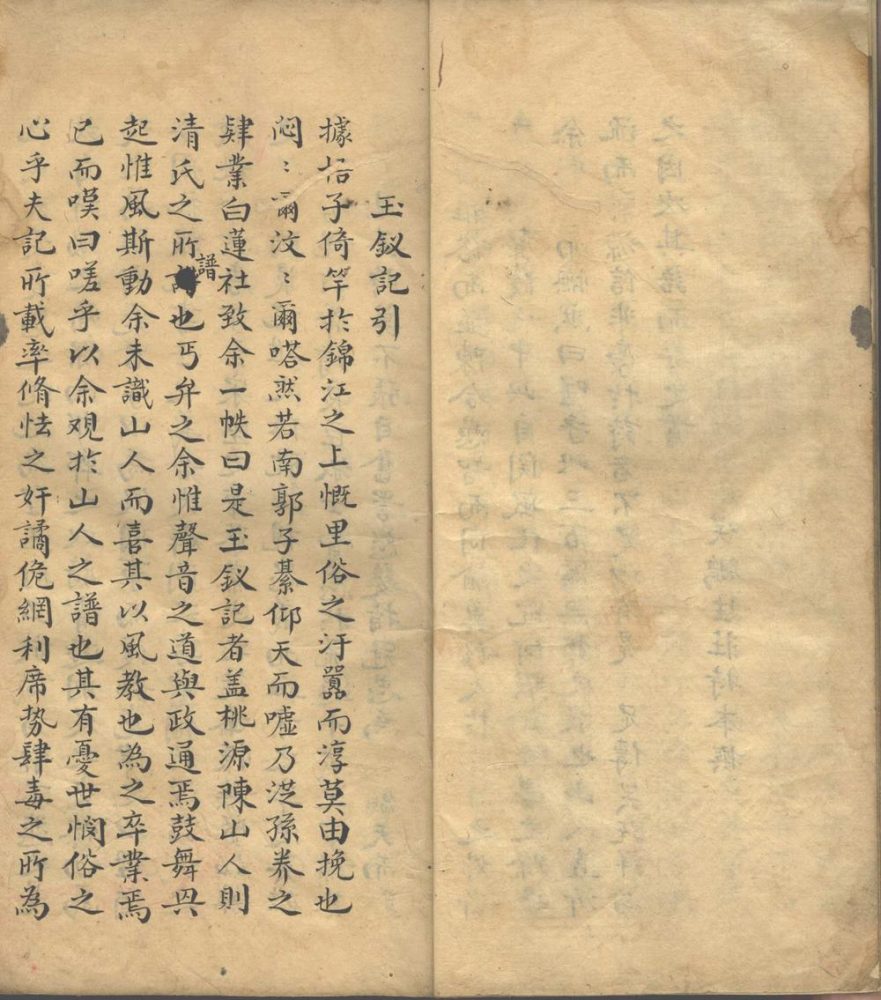 玉釵記引
據梧子倚竿於錦江之上慨里俗之汙囂而淳莫由挽也
悶〻爾汶〻爾嗒然若南郭子綦仰天而噓乃從孫奍之
肄業白蓮社致余一帙曰是玉釵記者盖桃源陳山人則
清氏之所譜也丐弁之余惟聲音之道與政通焉鼓舞興
起惟風斯動余未識山人而喜其以風教也為之卒業焉
已而嘆曰嗟乎以余观於山人之譜也其有憂世憫俗之
心乎夫記所載率脩怯之奸譎佹網利席势肆毒之所為